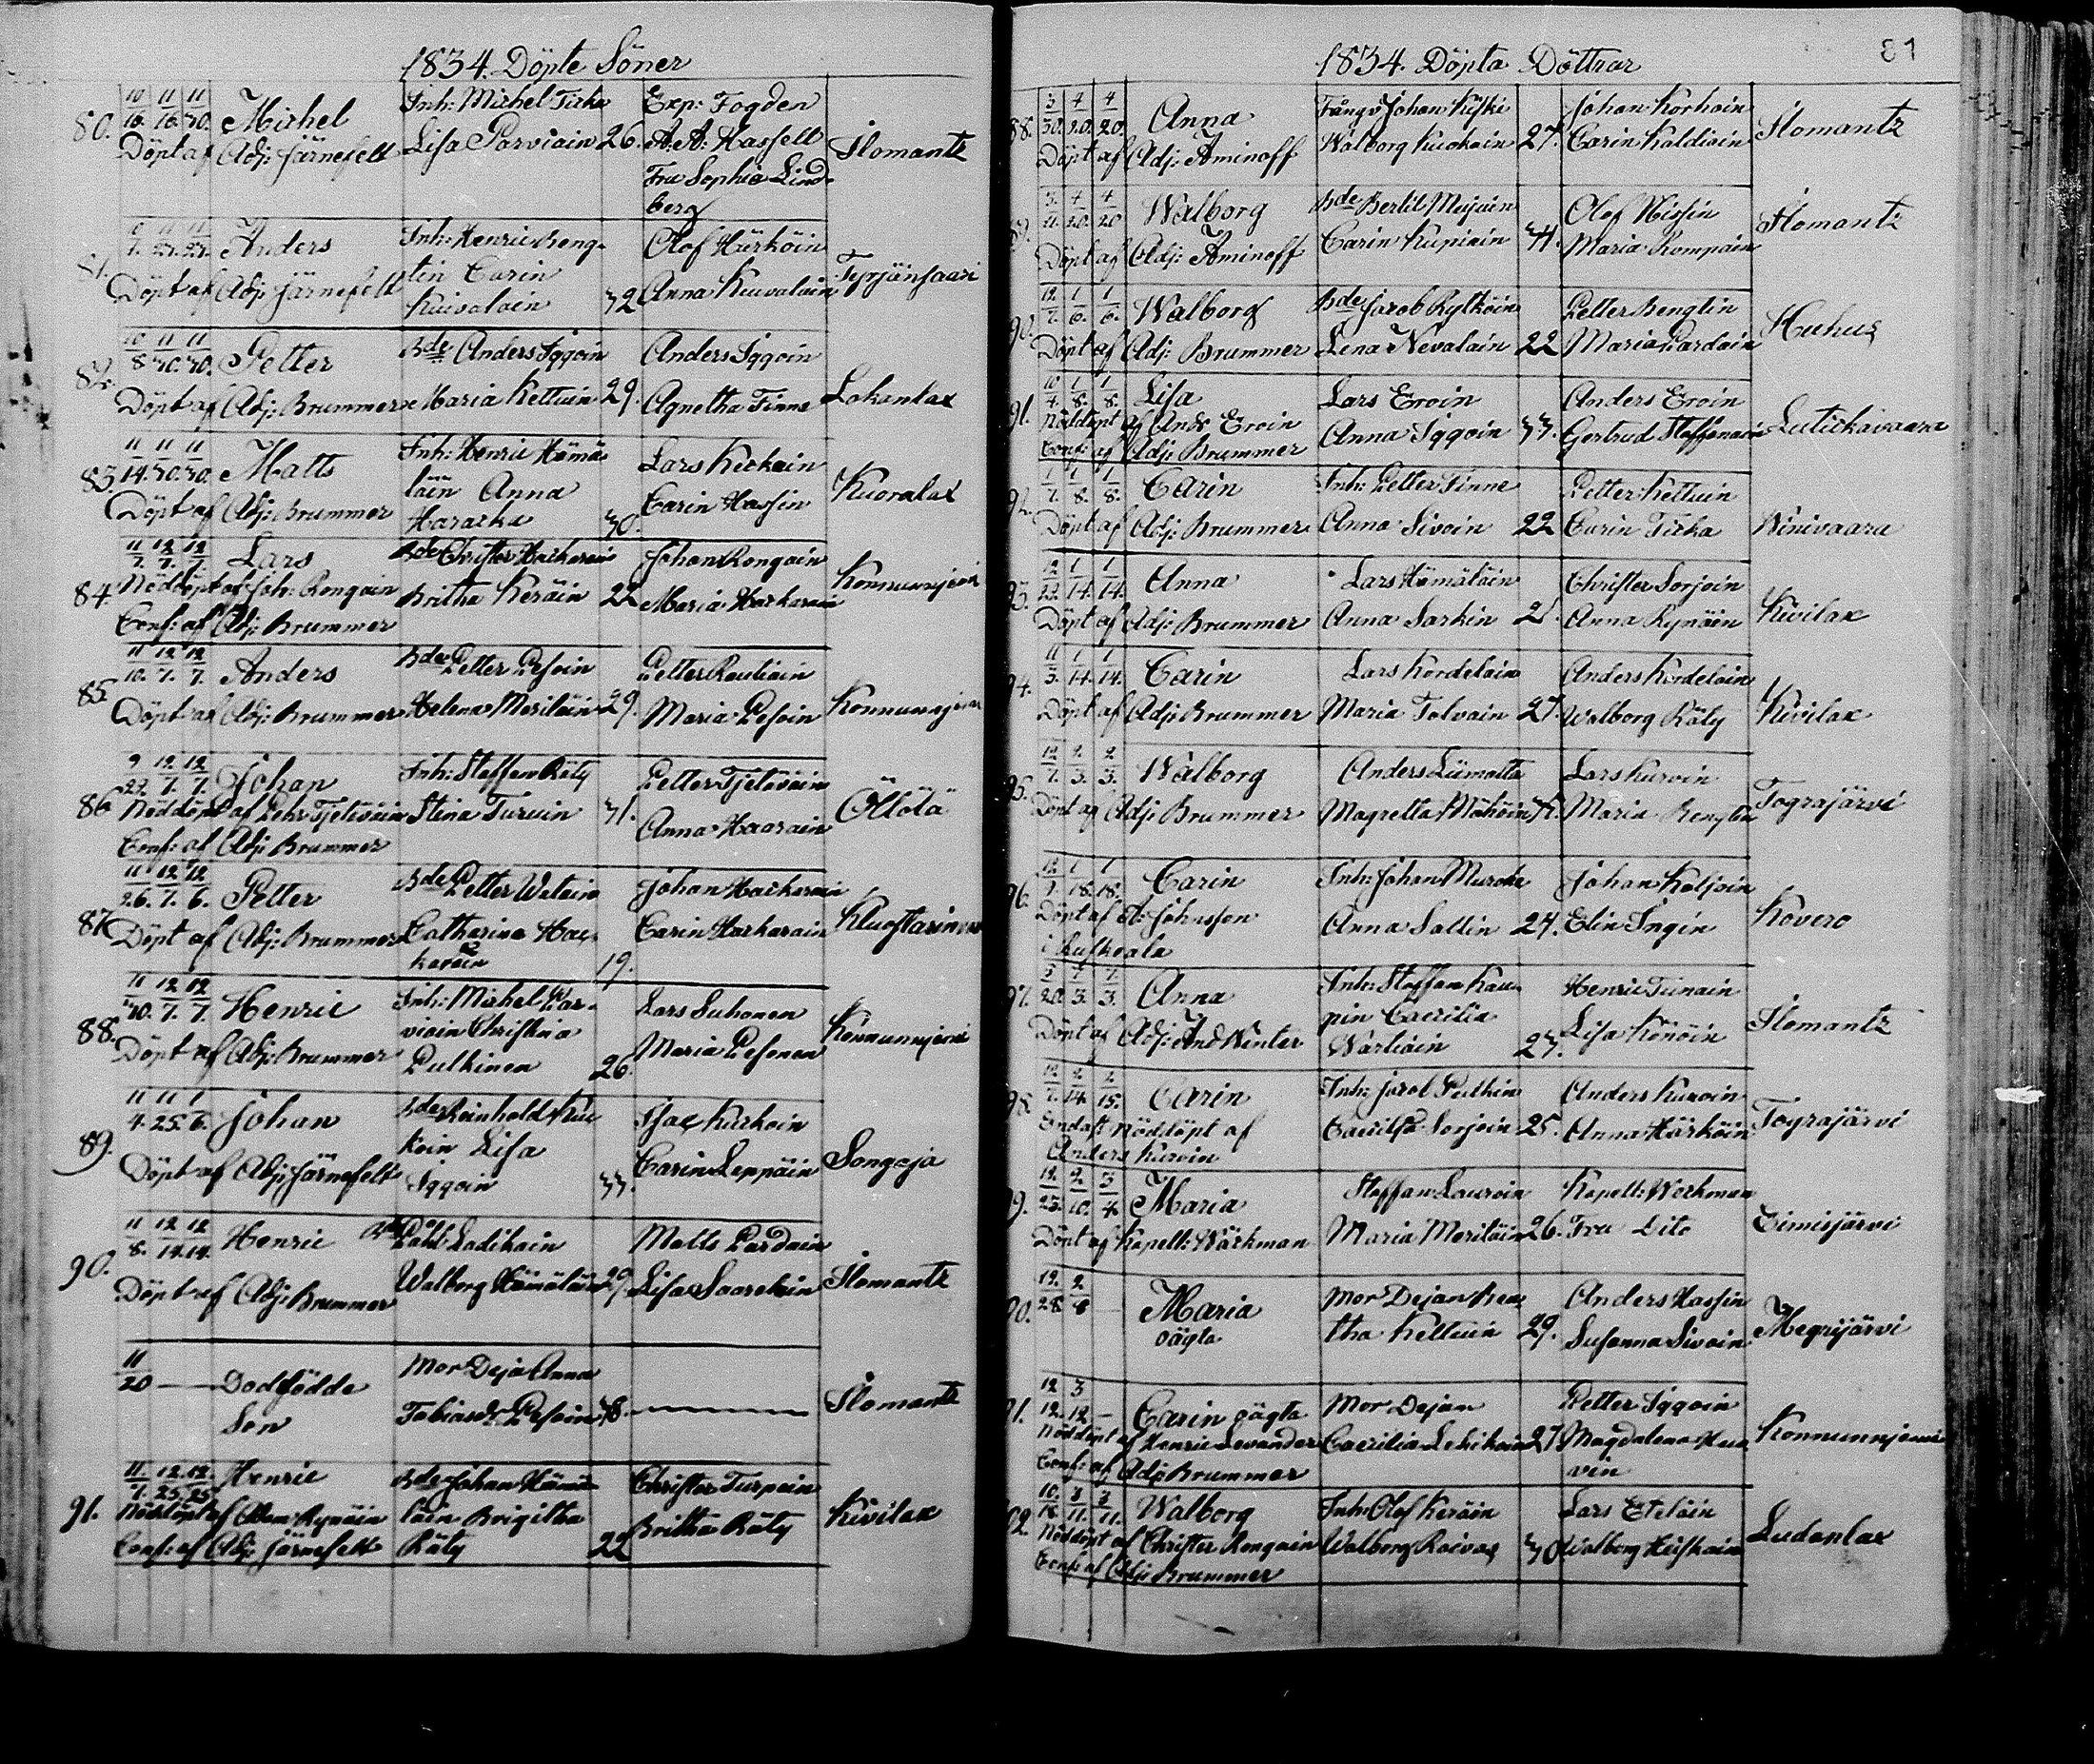 1834. Döpte Söner
80. 10/16. 11/16. 11/30. Michel
Döpt af Adj: Järnefelt
Inh: Michel Tirka
Lisa Parviain 26.
Exp: Fogden
A. A: Hassell
Fru Sophia Lind-
berg
Ilomantz
81. Anders
Döpt af Adj: Järnefelt
Inh: Henric Beng-
tin Carin
Kuivalain 32
Olof Härköin
Anna Kuivalain
82. 10/8 11/30. 11/30. Petter
Döpt af Adj: Brummer
Bde Anders Iggoin
Maria Kettuin 29.
Anders Iggoin
Agnetha Finne
Lokanlax
83. 11/14. 11/30. 11/30. Matts
Döpt af Adj: Brummer
Inh: Henric Hämä-
läin Anna
Hararka 30.
Lars Kickain
Carin Hassin
Kuoralax
84. 11/7. 12/7. 12/7. Lars
Nöddöpt af Joh: Rongain
Conf: af Adj: Brummer
Bde Christer Hackarain
Britha Keräin 22
Johan Rongain
Maria Hackarain
85. 11/10. 12/7. 12/7. Anders
Döpt af Adj: Brummer
Bde Petter Pesoin
Helena Meriläin 29.
Petter Rautiain
Maria Pesoin
86. 9/27. 12/7. 12/7. Johan
Nöddöpt af Pehr Tjetäväin
Conf: af Adj: Brummer
Inh: Staffan Räty
Stina Turuin 31.
Petter Tjetäväin
Anna Haarain
Öllölä
87. 11/26. 12/7. 12/6. Petter
Döpt af Adj: Brummer
Bde Petter Wetain
Catharina Hac-
karain 19.
Johan Hackarain
Carin Hackarain
88. 11/30. 12/7. 12/7. Henric
Döpt af Adj: Brummer
Inh: Michel Par-
viain Christina
Pulkinen 26.
Lars Suhonen
Maria Pesonen
89. 11/4. 11/25. 1/6. Johan
Döpt af Adj: Järnefelt
Bde Reinhold Kuc-
koin Lisa
Iggoin 33.
Isac Kuckoin
Carin Leppäin
Songaja
90. 11/8. 12/14. 12/14. Henric
Döpt af Adj: Brummer
Bde Påhl Ladikain
Walborg Hämäläin 29.
Matts Pardain
Lisa Saarelain
Ilomantz
11/20 — Dödfödde
Son
Mor Deja Anna
Tobiasdr Pesoin 38. —
Ilomantz
91. 11/7. 12/25. 12/25. Henric
Nöddöpt af Adam Rynäin
Conf: af Adj: Järnefelt
Bde Johan Hämä-
läin Brigitha
Räty 22
Christer Turpain
Britha Räty
Kivilax
1834. Döpta Döttrar
81
88. 3/30. 4/20. 4/20. Anna
Döpt af Adj: Aminoff
Fångv Johan Kiski
Walborg Kuokain 27.
Johan Korhoin
Carin Kaldiain
Ilomantz
89. 3/11. 4/20. 4/20 Walborg
Döpt af Adj: Aminoff
Bde Bertil Meijain
Carin Kupiain 34.
Olof Nissin
Maria Rompain
Ilomantz
90. 12/7. 1/6. 1/6. Walborg
Döpt af Adj: Brummer
Bde Jacob Rytköin
Lena Nevalain 22
Petter Bengtin
Maria Pardain
Huhus
91. 10/4. 1/8. 1/8. Lisa
Nöddöpt af Ands Eroin
Conf: af Adj: Brummer
Lars Eroin
Anna Iggoin 33.
Anders Eroin
Gertrud Staffanain
Lutickavaara
92. 1/7. 1/8. 1/8. Carin
Döpt af Adj: Brummer
Inh: Petter Finne
Anna Sivoin 22
Petter Kettuin
Carin Tirka
Ninivaara
93. 12/23. 1/14. 1/14. Anna
Döpt af Adj: Brummer
Lars Hämäläin
Anna Sarkin
Christer Sorjoin
Anna Rynäin
Kivilax
94. 11/3. 1/14. 1/14. Carin
Döpt af Adj: Brummer
Lars Kordelain
Maria Tolvain 27.
Anders Kordelain
Walborg Räty
Kivilax
95. 12/7. 2/3. 2/3. Walborg
Döpt af Adj: Brummer
Anders Liimatta
Magretta Mähöin
Lars Kurvin
Maria Bengtin
Tograjärvi
96. 12/7. 1/18. 1/18. Carin
Döpt af A: Johnsson
i Ruskeala
Inh: Johan Muroke
Anna Saltin 24.
Johan Koljoin
Elin Ingin
Kovero
97. Anna
Döpt af Adj: And Winter
Inh: Staffan Kau-
pin Caecilia
Wartiain 23.
Henric Tiinain
Lisa Könöin
Ilomantz
98. 12/7. 2/14. 2/15. Carin
Endast nöddöpt af
Anders Kurvin
Inh: Jacob Pulkin
Caecilia Sorjoin 25.
Anders Kurvin
Anna Härköin
Tograjärvi
99. 12/23. 2/10. 3/4. Maria
Döpt af Kapell: Wärkman
Staffan Lauroin
Maria Meriläin 26.
Kapell: Werkman
Fru Dito
Eimisjärvi
90. 12/28 2/8 — Maria
oägta
Mor Dejan Brea-
tha Kettuin 29.
Anders Hassin
Susanna Sivoin
Megrijärvi
91. 12/12. 3/12 — Carin oägta
Nöddöpt af Henric Levander
Conf: af Adj: Brummer
Mor Dejan
Caecilia Lehikoin 27.
Petter Iggoin
Magdalena Kur-
vin
92. 10/18. 3/11. 3/11. Walborg
Nöddöpt af Christer Rongain
Conf: af Adj: Brummer
Inh: Olof Keräin
Walborg Raivas 30
Lars Eteläin
Walborg Heiskain
Ludanlax